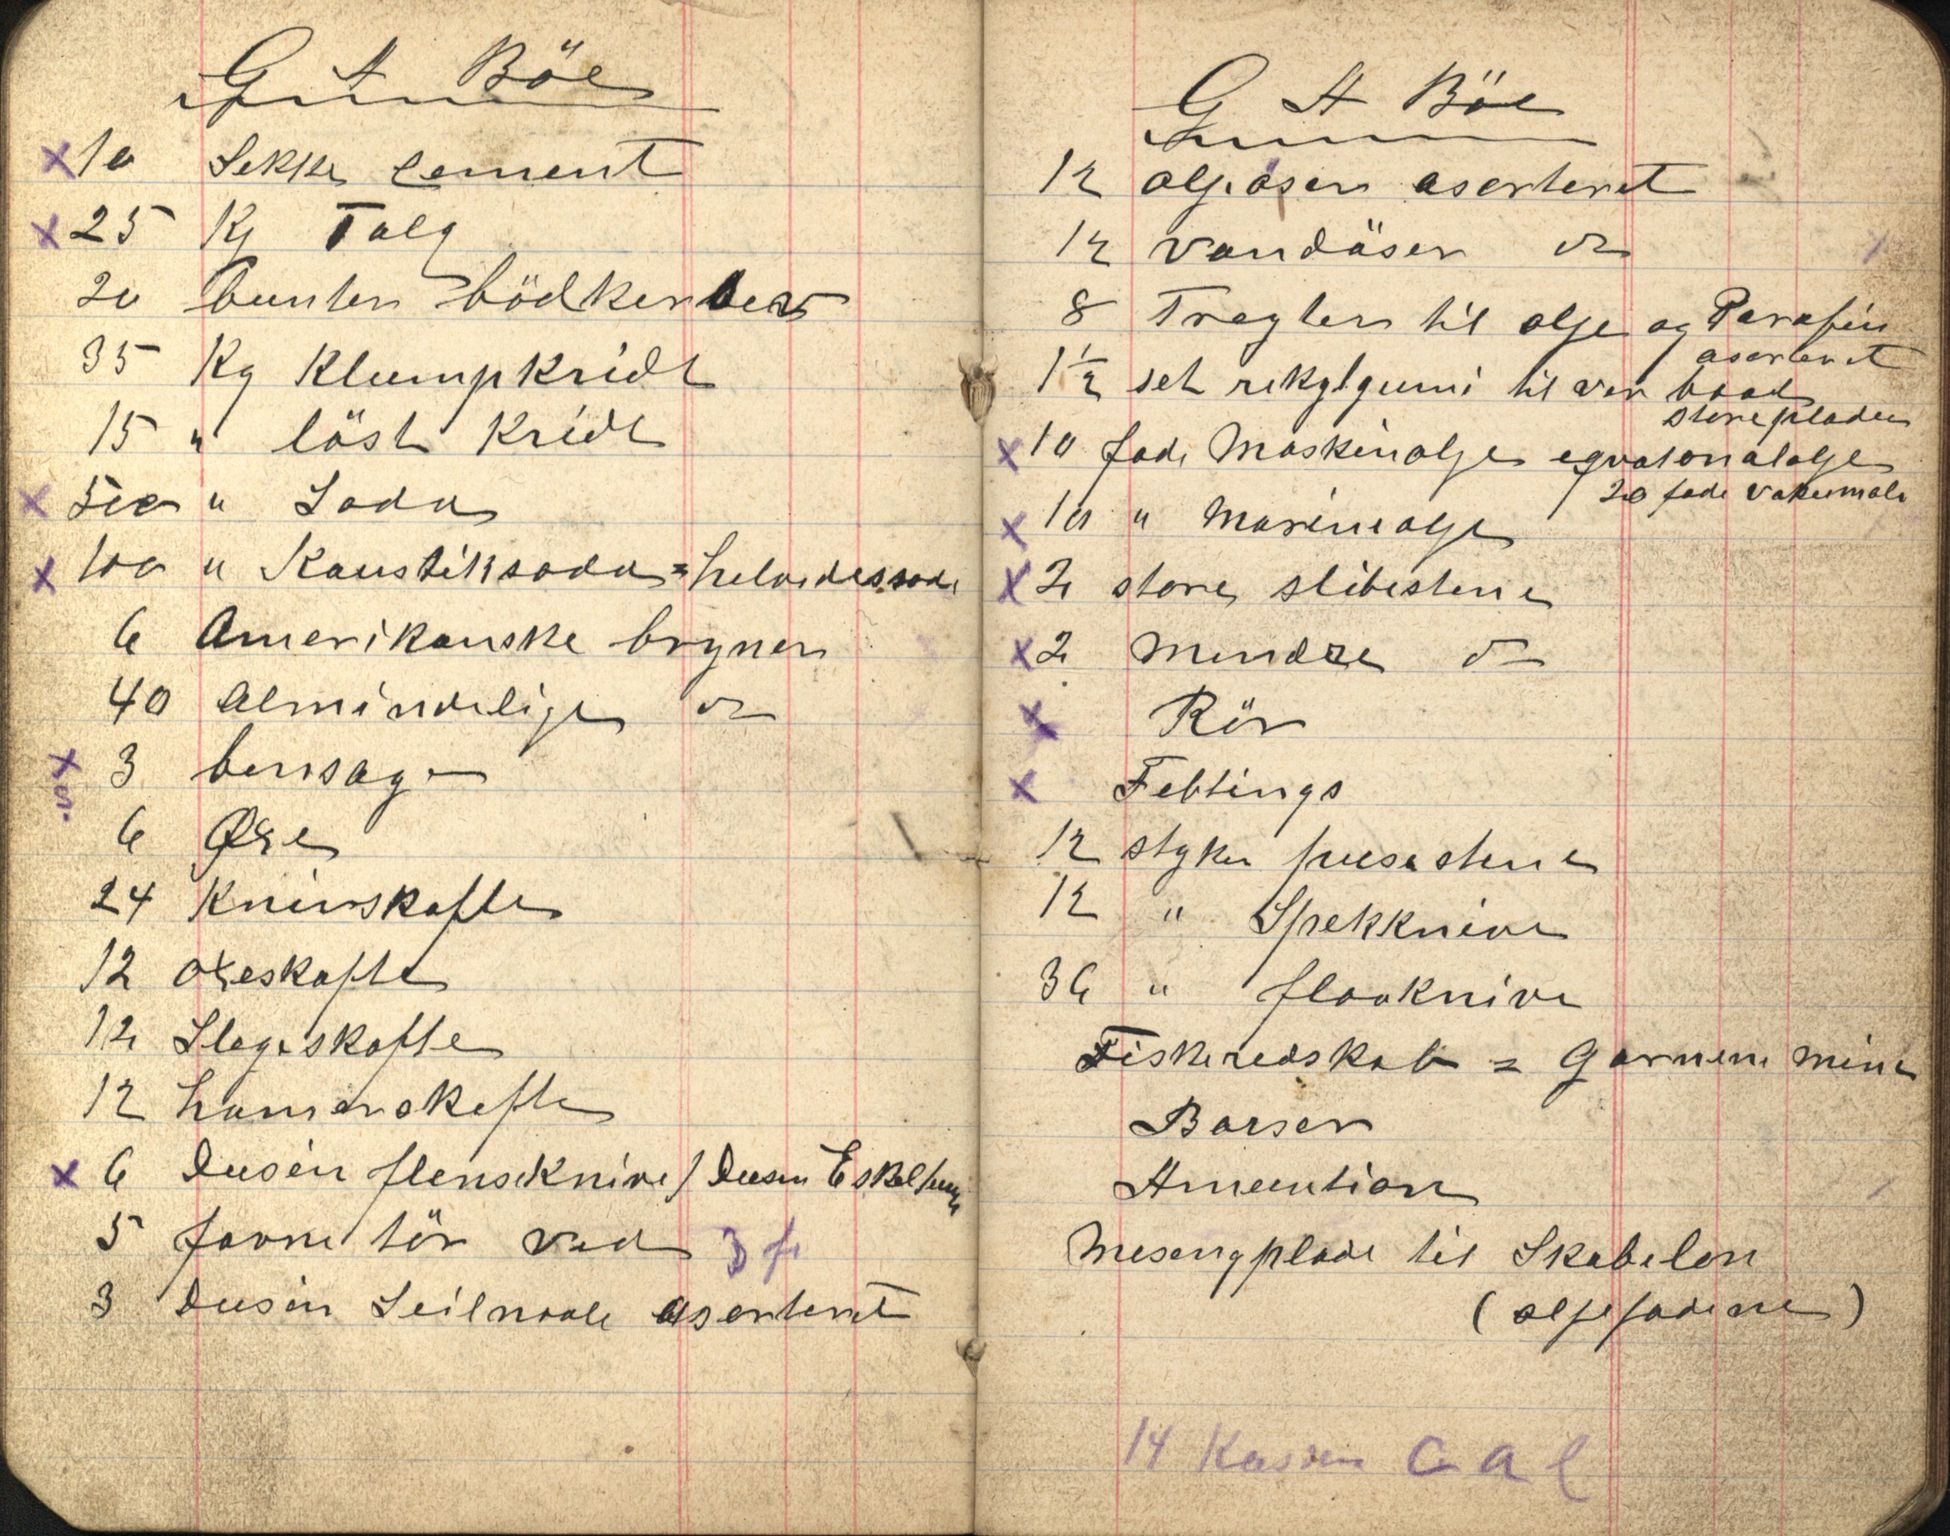 G A Böe
x 10 Sekke cement
x 25 Kg Talg
20 bunter bödker
35 Kg Klumpkridt
15 " löst Kridt
x 500 " Soda
x 100 " Kaustiksoda = helvedessoda
6 Amerikanske bryner
40 almindelige do
x 3 bensag
6 Øxe
24 Knivskafte
12 oxeskafte
12 Slegeskafte
12 hamerskafte
x 6 Dusin flenseknive 1 Dusin
5 favne tör ved 3 f
3 Dusin Seilnaale aserteret
G A Böe
12 oljeöser aserteret
12 vandöser do
8 Tragter til olje og Parafin
aserteret
1½ set rekylgumi til vor baad
store pladen
x 10 fade Maskinolje eqvatorialolje
20 fade
x 10 " Marineolje
x 2 store slibestene
x 2 Mindre do
x Rör
x Febtings
12 styker pusestene
12 " Spekknive
36 " flaaknive
Fiskeredskab = Garnene mine
Barser
Amunition
Mesengplade til Skabelon
(oljefadene)
14 Kassen C a l